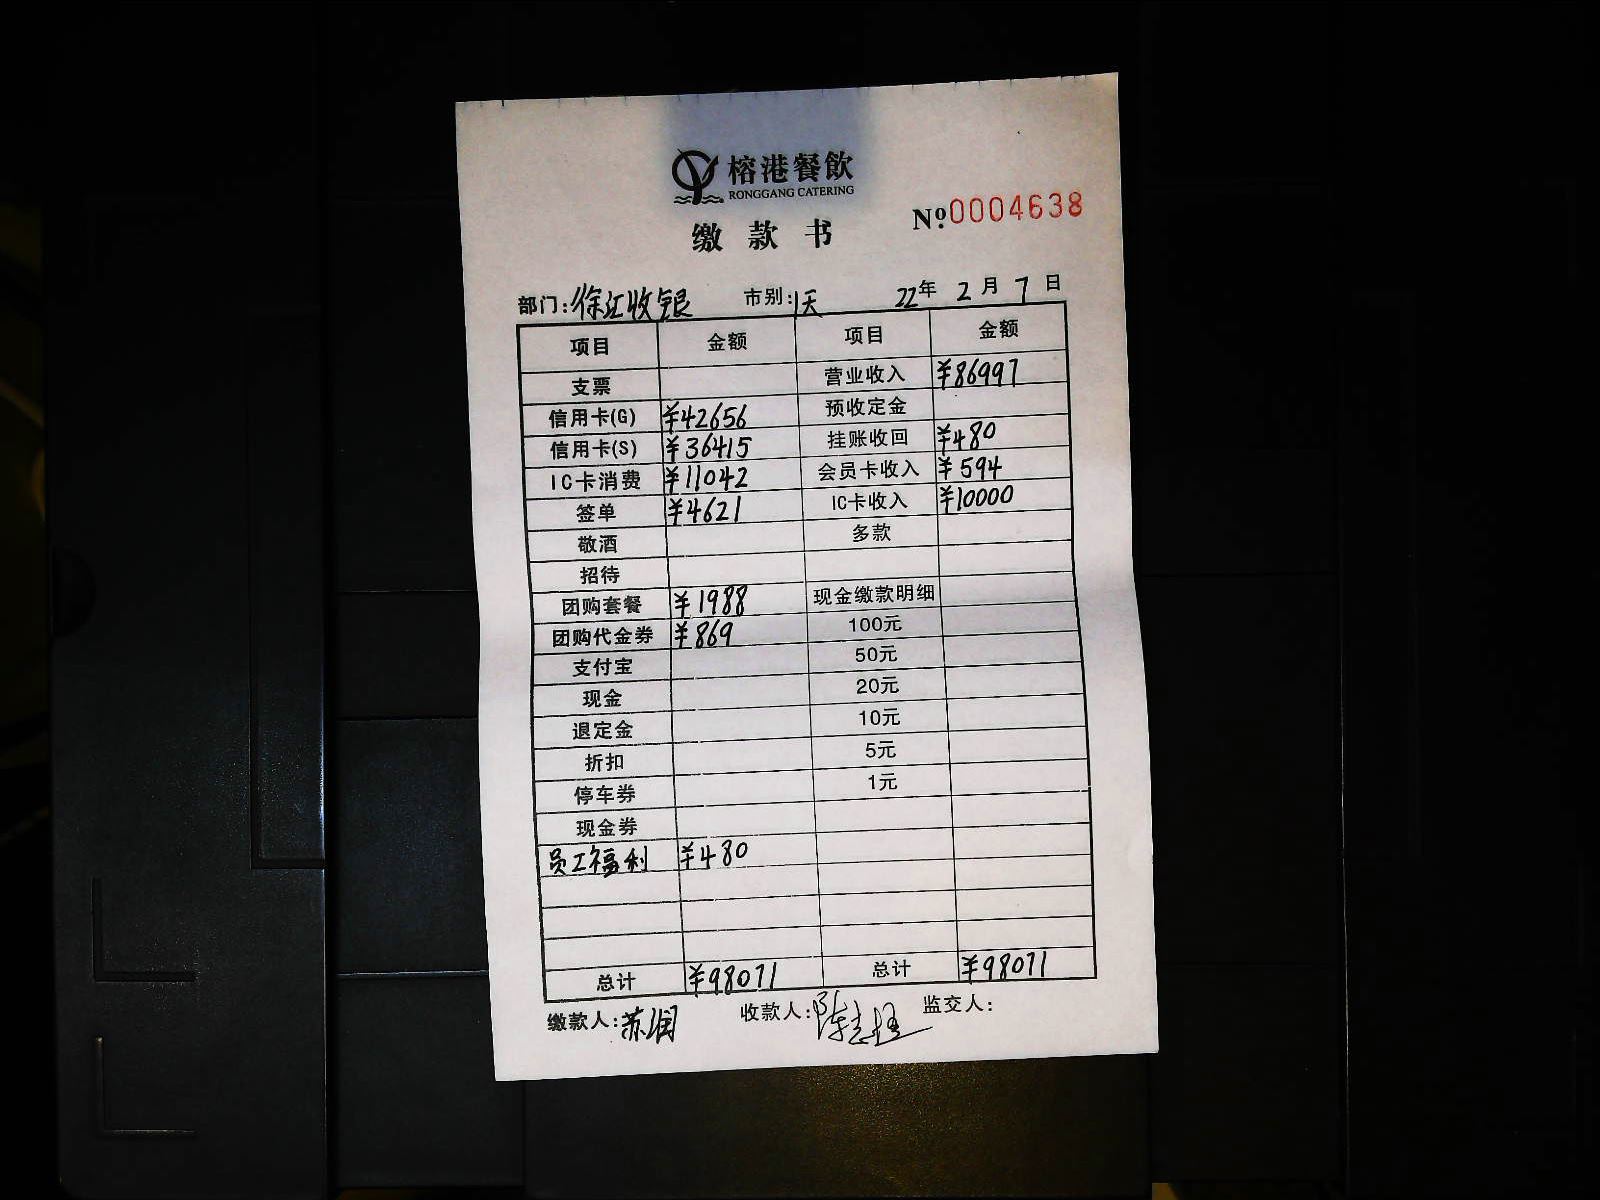 榕港餐飲
RONGGANG CATERING
№.0004638
缴款书
部门:徐汇收银 市别:1天 22年2月7日
项目 金额 项目 金额
支票 营业收入 ¥86997
信用卡(G) ¥42656 预收定金
信用卡(S) ¥36415 挂账收回 ¥480
IC卡消费 ¥11042 会员卡收入 ¥594
签单 ¥4621 IC卡收入 ¥10000
敬酒 多款
招待
团购套餐 ¥1988 现金缴款明细
团购代金券 ¥869 100元
支付宝 50元
现金 20元
退定金 10元
折扣 5元
停车券 1元
现金券
员工福利 ¥480
总计 ¥98071 总计 ¥98071
缴款人:苏润 收款人:陈 监交人: